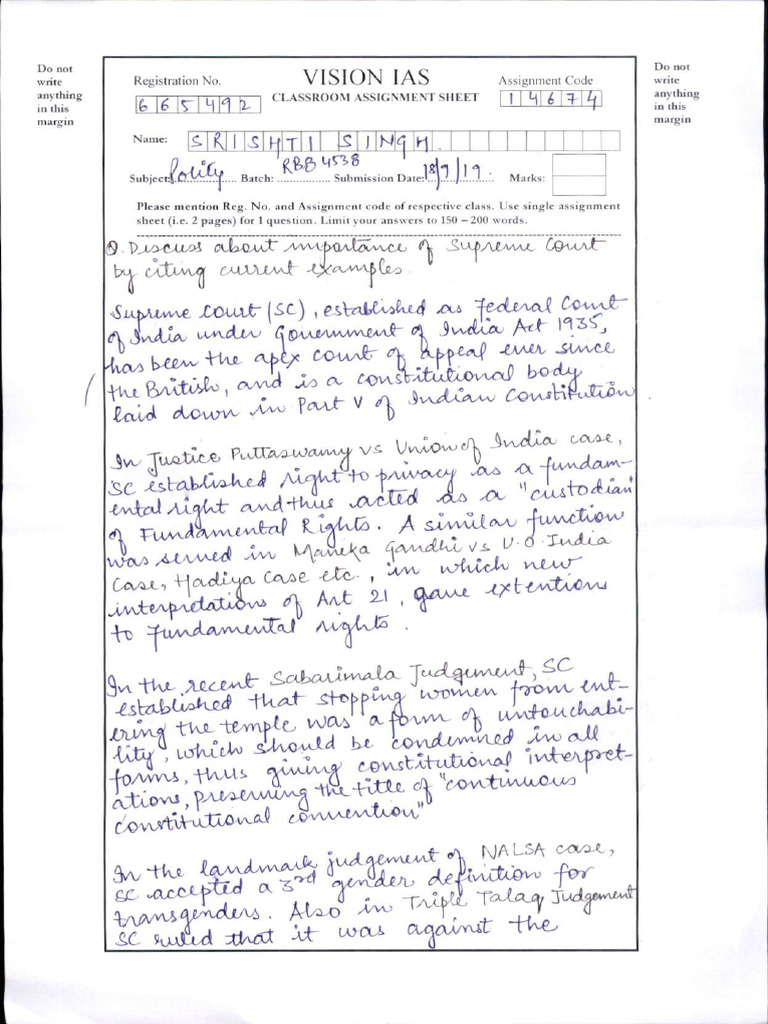 Do not
write
anything
in this
margin
Do not
write
anything
in this
margin
Registration No.
VISION IAS
Assignment Code
665492
CLASSROOM ASSIGNMENT SHEET
14674
Name: SRISHTI SINGH
Subject: Polity Batch: RBB 4538 Submission Date: 18/7/19. Marks:
Please mention Reg. No. and Assignment code of respective class. Use single assignment
sheet (i.e. 2 pages) for 1 question. Limit your answers to 150 – 200 words.
Q. Discuss about importance of Supreme Court
by citing current examples.
Supreme Court (SC), established as Federal Court
of India under Government of India Act 1935,
has been the apex court of appeal ever since
the British, and is a constitutional body
laid down in Part V of Indian Constitution
In Justice Puttaswamy vs Union of India case,
SC established right to privacy as a fundam-
ental right and thus acted as a "custodian"
of Fundamental Rights. A similar function
was served in Maneka Gandhi vs U.O. India
Case, Hadiya Case etc., in which new
interpretations of Art 21, gave extentions
to Fundamental rights.
In the recent Sabarimala Judgement, SC
established that stopping women from ent-
ering the temple was a form of untouchabi-
lity, which should be condemned in all
forms, thus giving constitutional interpret-
ations, preserving the title of "continuous
constitutional convention"
In the landmark judgement of NALSA case,
SC accepted a 3rd gender definition for
transgenders. Also in Triple Talaq Judgement
SC ruled that it was against the